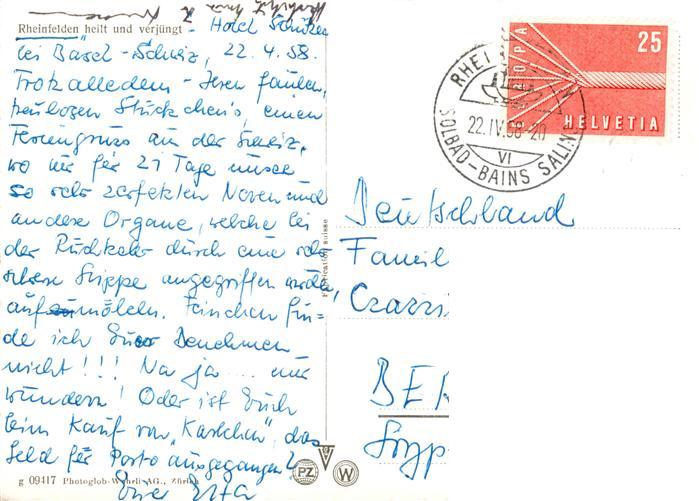 Rheinfelden heilt und verjüngt - Hotel Schützen
bei Basel - Schweiz, 22. 4. 58.
Trotzalledem - Ihren faulen,
treulosen Stückchen's, einen
Feriengruss aus der Schweiz,
wo wir für 21 Tage unsere
so sehr zerfetzten Nerven und
andere Organe, welche bei
der Rückkehr durch eine sehr
schwere Grippe angegriffen wurden,
aufmöbeln. Feinchen fin-
de ich Euer Benehmen
nicht!!! Na ja .... nur
wundern! Oder ist Euch
beim Kauf von "Karlchen" das
Geld für Porto ausgegangen?
g 09417 Photoglob-Wehrli AG., Zürich
Eure
Fabrication suisse
PZ
W
25
EUROPA
HELVETIA
RHEINFELDEN
22.IV.58-20
VI
SOLBAD-BAINS SALINS
Deutschland
Famil